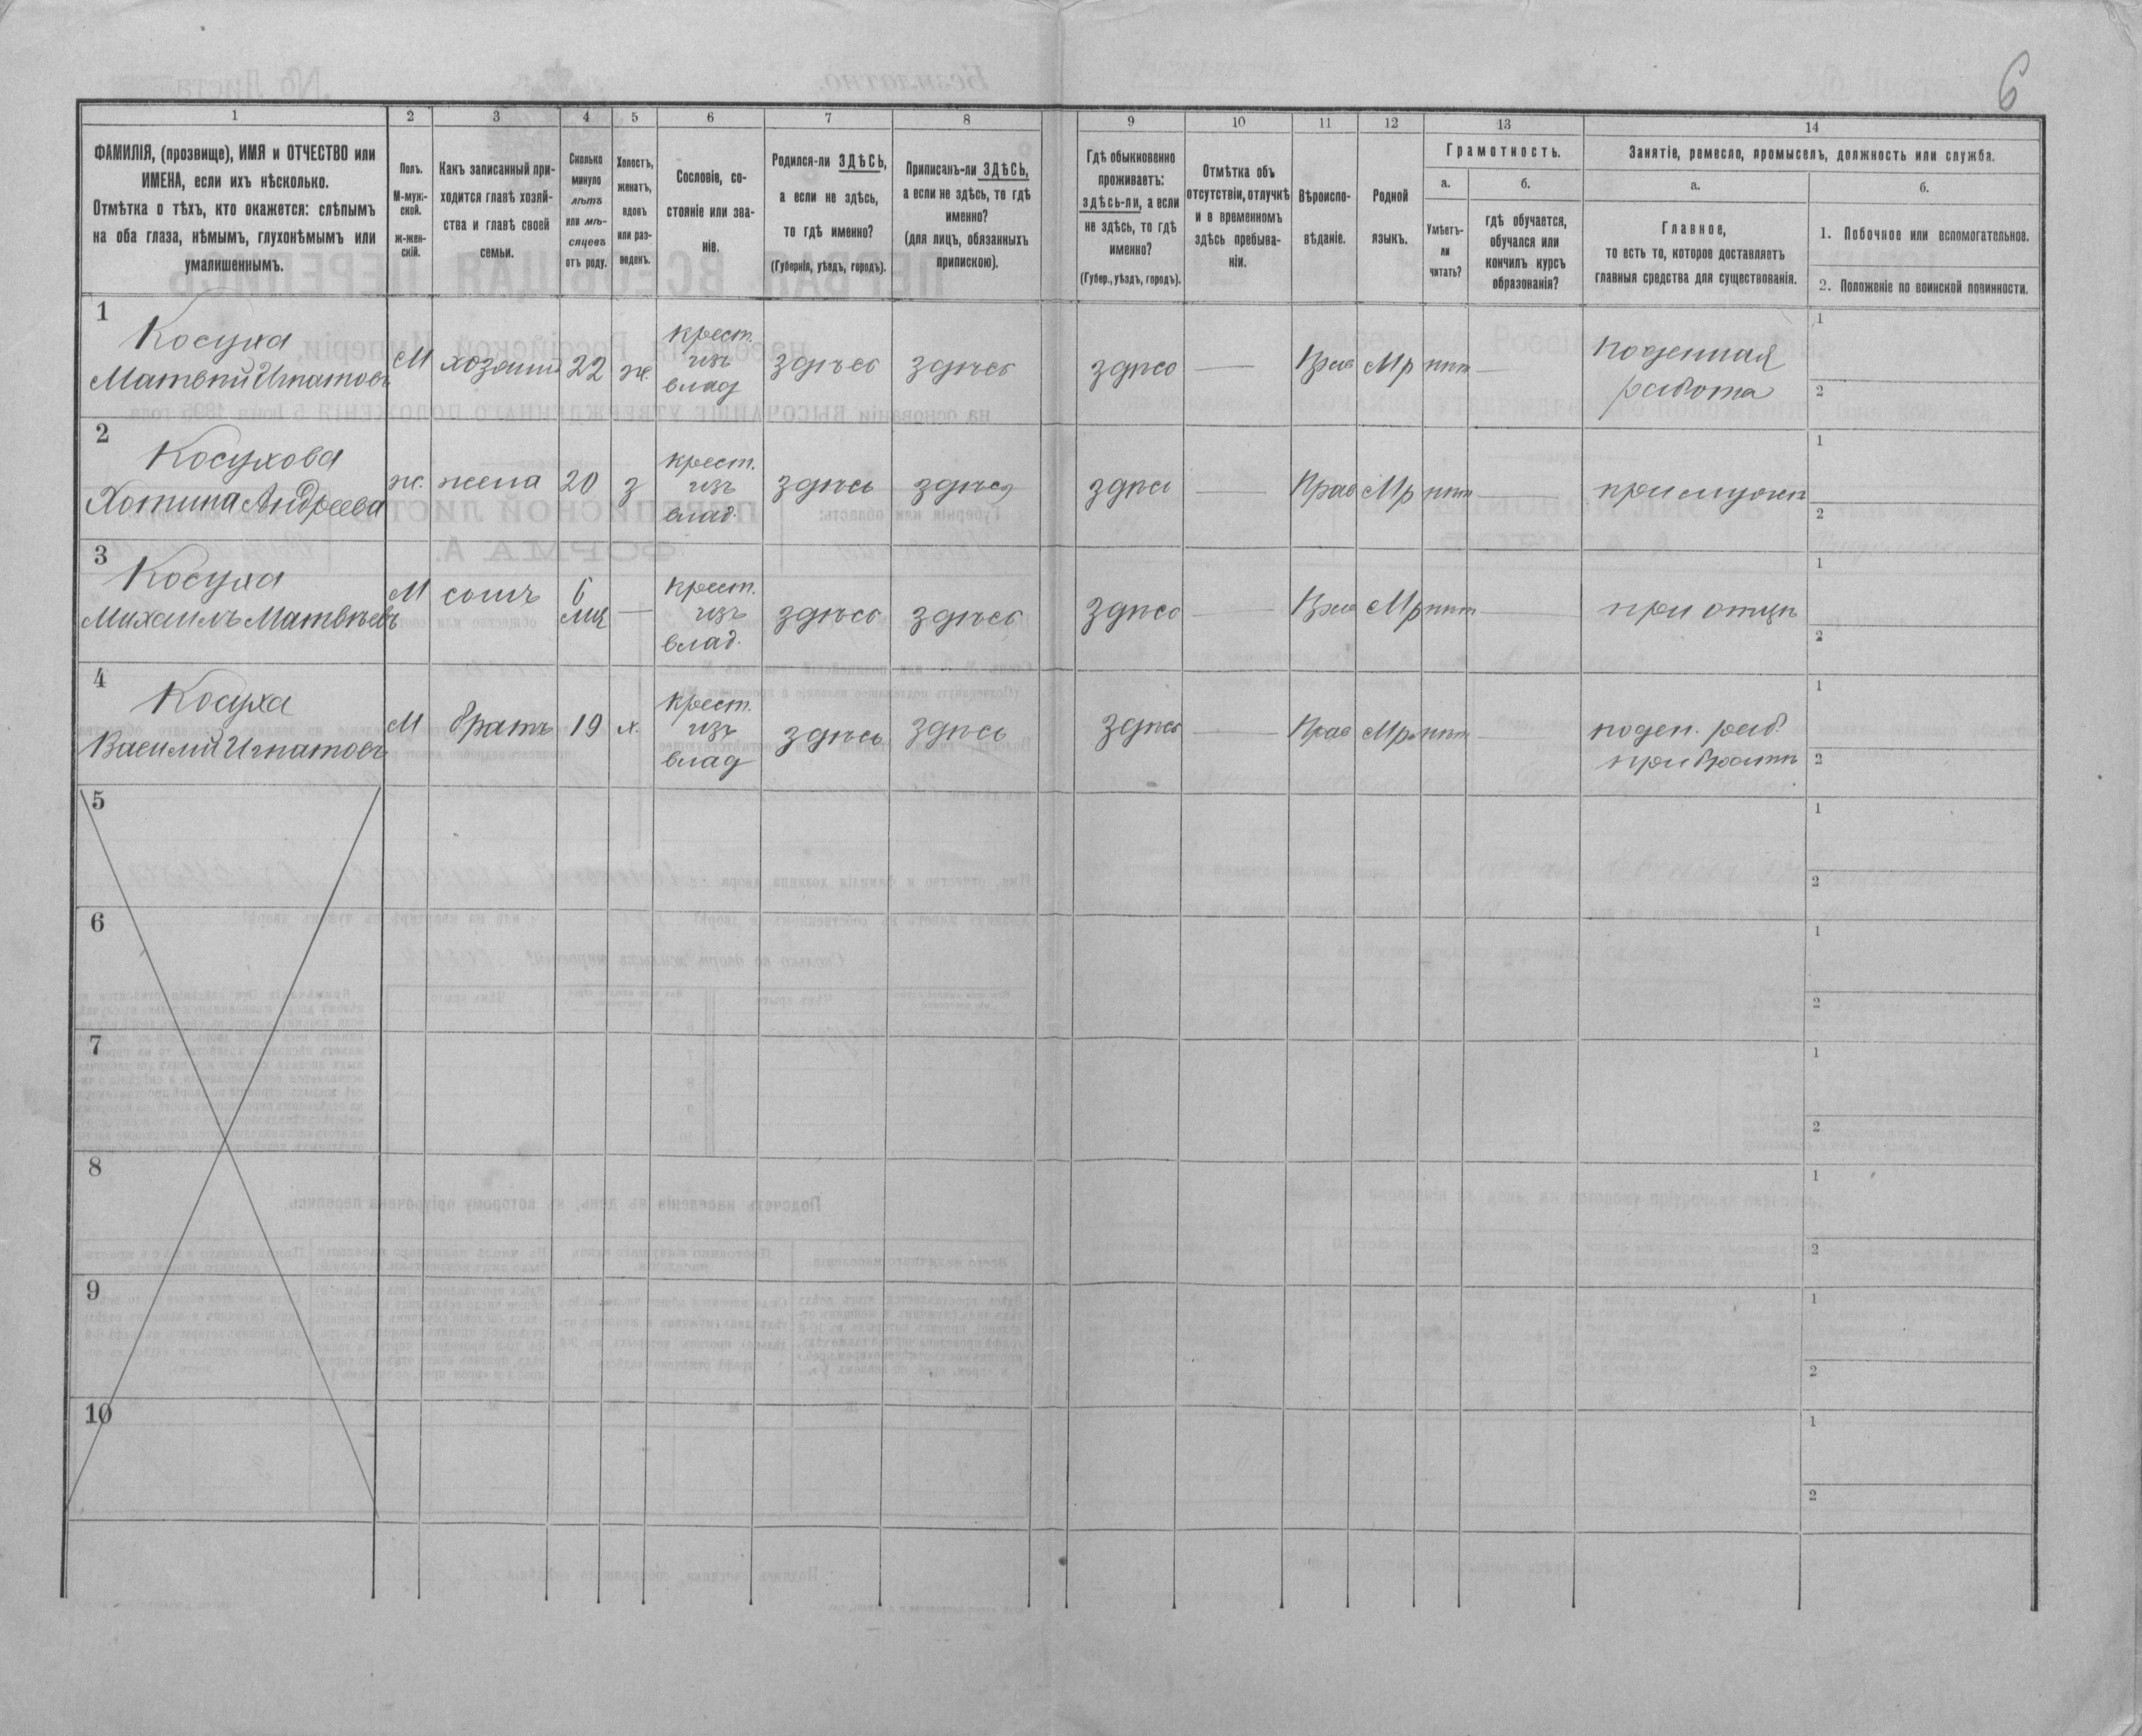 6
1
2
3
4
5
6
7
8
9
10
11
12
13
14
ФАМИЛІЯ, (прозвище), ИМЯ и ОТЧЕСТВО или
ИМЕНА, если ихъ нѣсколько.
Отмѣтка о тѣхъ, кто окажется: слѣпымъ
на оба глаза, нѣмымъ, глухонѣмымъ или
умалишеннымъ.
Полъ.
М-муж-
ской.
ж-жен-
скій.
Какъ записанный при-
ходится главѣ хозяй-
ства и главѣ своей
семьи.
Сколько
минуло
лѣтъ
или мѣ-
сяцевъ
отъ роду.
Холостъ,
женатъ,
вдовъ
или раз-
веденъ.
Сословіе, со-
стояніе или зва-
ніе.
Родился-ли ЗДѢСЬ,
а если не здѣсь,
то гдѣ именно?
(Губернія, уѣздъ, городъ).
Приписанъ-ли ЗДѢСЬ,
а если не здѣсь, то гдѣ
именно?
(для лицъ, обязанныхъ
припискою).
Гдѣ обыкновенно
проживаетъ:
здѣсь-ли, а если
не здѣсь, то гдѣ
именно?
(Губер., уѣздъ, городъ).
Отмѣтка объ
отсутствіи, отлучкѣ
и о временномъ
здѣсь пребыва-
ніи.
Вѣроиспо-
вѣданіе.
Родной
языкъ.
Грамотность.
а.
Умѣетъ-
ли
читать?
б.
гдѣ обучается,
обучался или
кончилъ курсъ
образованія?
Занятіе, ремесло, промыселъ, должность или служба.
а.
Главное,
то есть то, которое доставляетъ
главныя средства для существованія.
б.
1. Побочное или вспомогательное.
2. Положеніе по воинской повинности.
1
Косуха
Матвѣй Игнатовъ
М
хозяинъ
22
ж.
крест.
изъ
влад
здѣсь
здѣсь
здѣсь
—
Прав
Мр
нѣт
—
поденная
работа
1
2
2
Косухова
Хотина Андреева
ж.
жена
20
з
крест.
изъ
влад.
здѣсь
здѣсь
здѣсь
—
Прав
Мр
нѣт
—
при мужѣ
1
2
3
Косуха
Михаилъ Матвѣевъ
М
сынъ
6
мц
—
крест.
изъ
влад.
здѣсь
здѣсь
здѣсь
—
Прав
Мр
нѣт
—
при отцѣ
1
2
4
Косуха
Василій Игнатовъ
М
братъ
19
х.
крест.
изъ
влад
здѣсь
здѣсь
здѣсь
—
Прав
Мр.
нѣт
—
поден. раб.
при братѣ
1
2
5
1
2
6
1
2
7
1
2
8
1
2
9
1
2
10
1
2